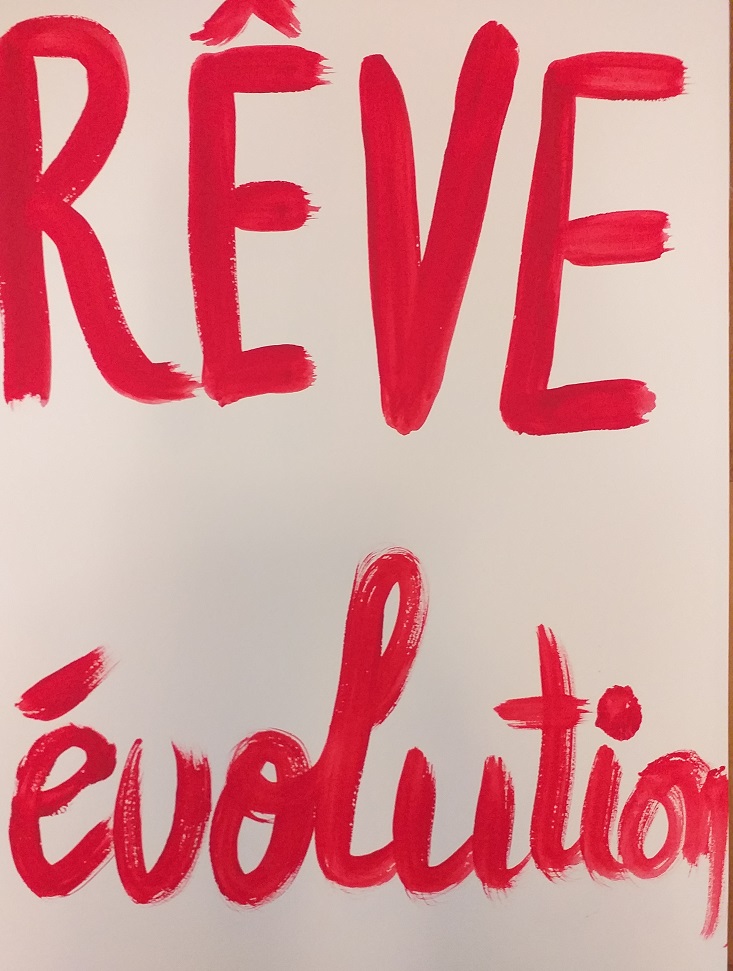 RÊVE
évolution